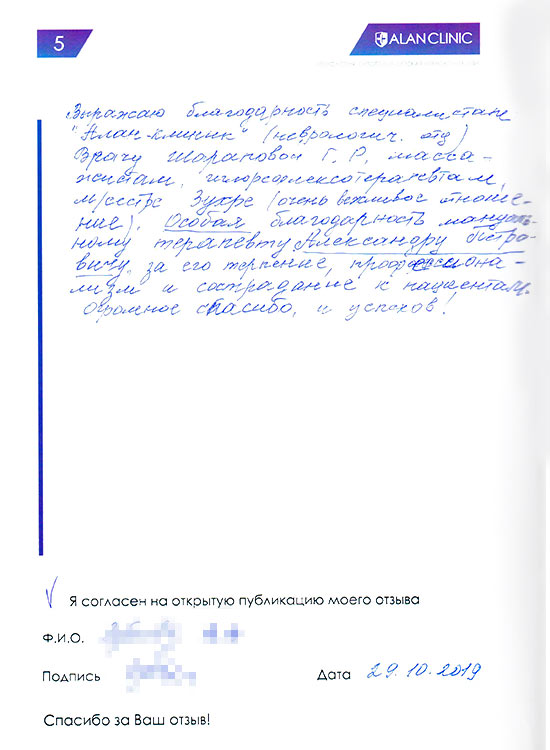 5
ALAN CLINIC
Выражаю благодарность специалистам
"Алан-клиник" (неврологич. отд)
Врачу Шараповой Г.Р, масса-
жистам, иглорефлексотерапевтам,
м/сестре Зухре (очень вежливое отноше-
ние). Особая благодарность мануаль-
ному терапевту Александру Петро-
вичу за его терпение, профессиона-
лизм и сострадание к пациентам.
Огромное спасибо, и успехов!
V Я согласен на открытую публикацию моего отзыва
Ф.И.О.
Подпись Дата 29.10.2019
Спасибо за Ваш отзыв!